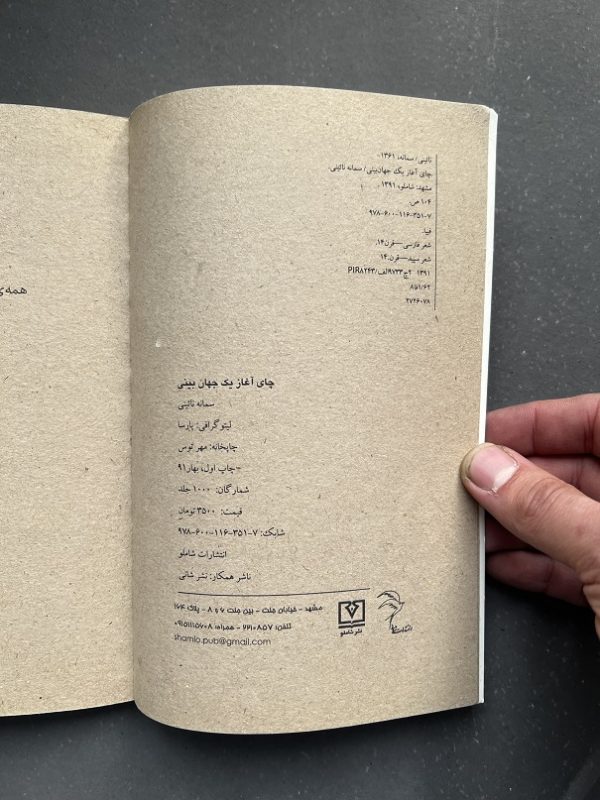 همه‌ی
نائینی/ سمانه، ۱۳۶۱-
چای آغاز یک جهان‌بینی/ سمانه نائینی.
مشهد: شاملو، ۱۳۹۱.
۱۰۴ ص.
۹۷۸-۶۰۰-۱۱۶-۳۵۱-۷
فیپا.
شعر فارسی--قرن۱۴.
شعر سپید--قرن۱۴.
۱۳۹۱ ۲چ۹۷۳۳الف/PIR۸۲۴۳
۸فا۱/۶۲
۲۷۲۶۰۷۸
چای آغاز یک جهان بینی
سمانه نائینی
لیتوگرافی: پارسا
چاپخانه: مهر توس
-چاپ اول، بهار۹۱
شمارگان: ۱۰۰۰ جلد
قیمت: ۳۵۰۰ تومان
شابک: ۷-۳۵۱-۱۱۶-۶۰۰-۹۷۸
انتشارات شاملو
ناشر همکار: نشر شانی
مشهد - خیابان جنت - بین جنت ۶ و ۸ - پلاک ۱۶۴
تلفن: ۲۲۱۰۸۵۷ - همراه: ۰۹۱۵۱۱۱۵۶۰۸
shamlo.pub@gmail.com
نشر شاملو